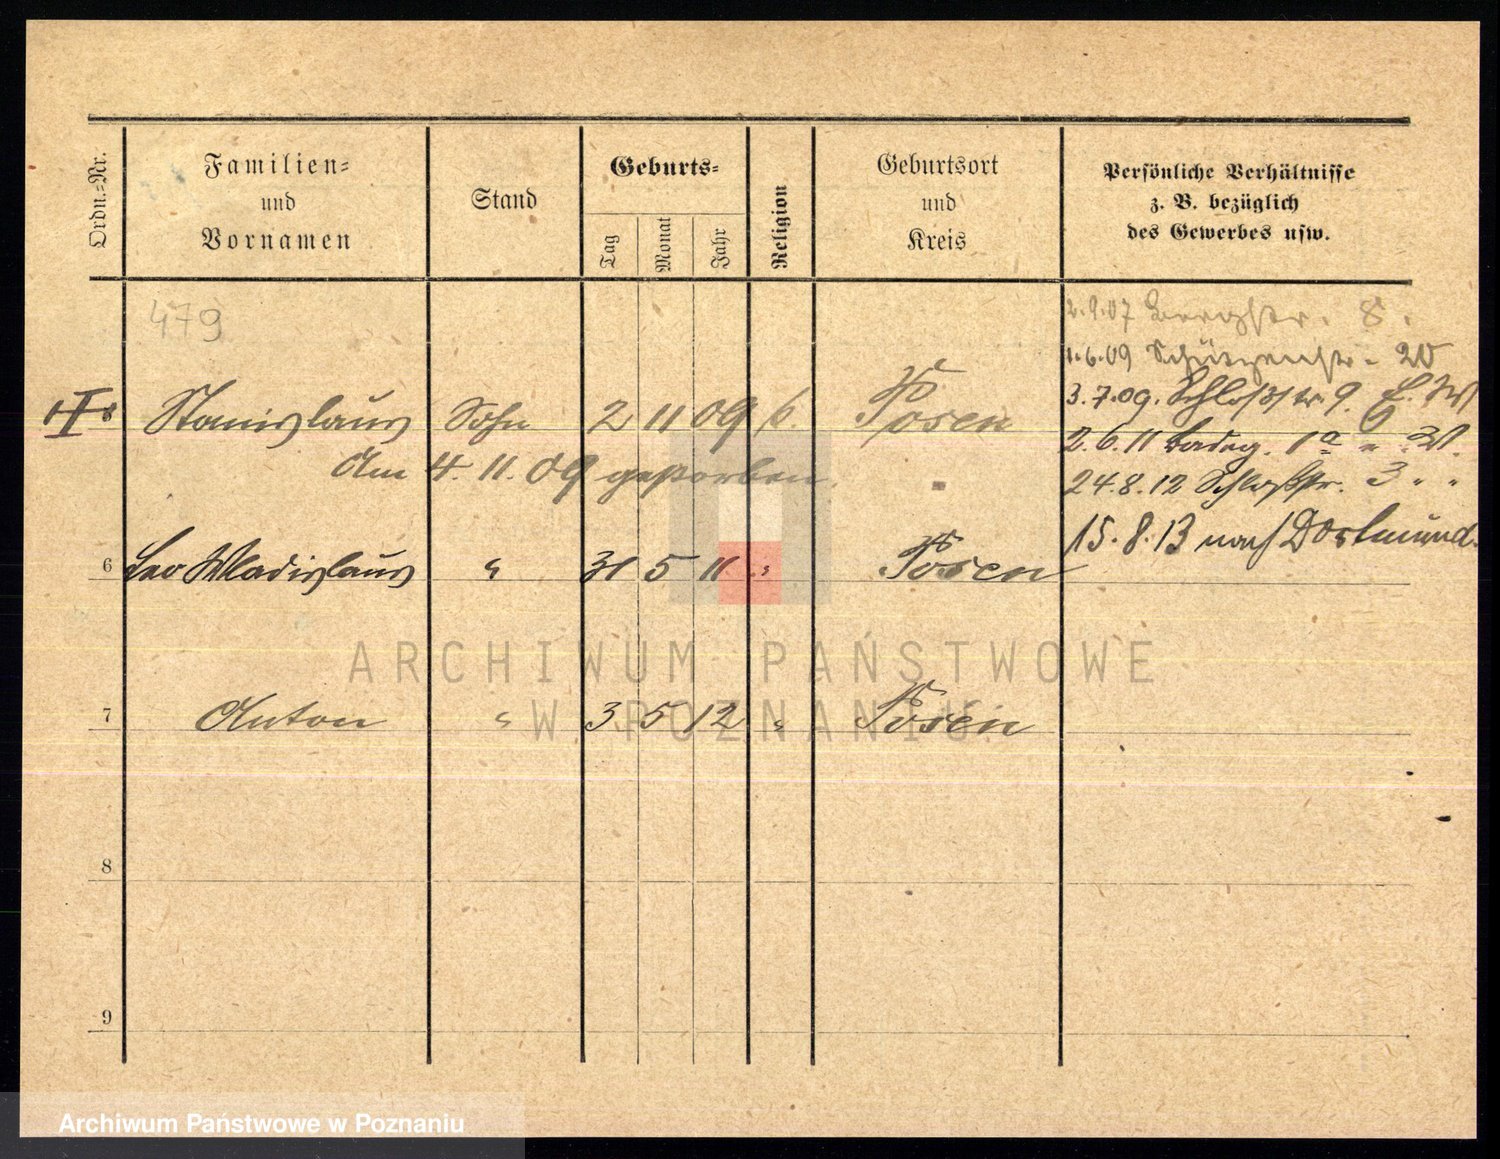 Ordn.-Nr.
Familien-
und
Vornamen
Stand
Geburts-
Tag
Monat
Jahr
Religion
Geburtsort
und
Kreis
Persönliche Verhältnisse
z. B. bezüglich
des Gewerbes usw.
479
2.9.07 Bergstr. 8.
1.6.09 Schützenstr. 20
3.7.09. Schloßstr. 9.
Stanislaus Sohn 2 11 09 Posen
2.6.11
Am 4. 11. 09 gestorben.
24.8.12 Schloßstr. 3 " "
15.8.13 nach Dortmund.
6 Leo Wladislaus " 31 5 11 " Posen
7 Anton " 3 5 12 " Posen
8
9
ARCHIWUM PAŃSTWOWE
W POZNANIU
Archiwum Państwowe w Poznaniu